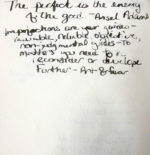 The perfect is the enemy
of the good - Ansel Adams
Imperfections are your guides -
invaluable, reliable, objective,
non-judgmental guides - To
matters you need to
reconsider or develop
further - Art & Fear